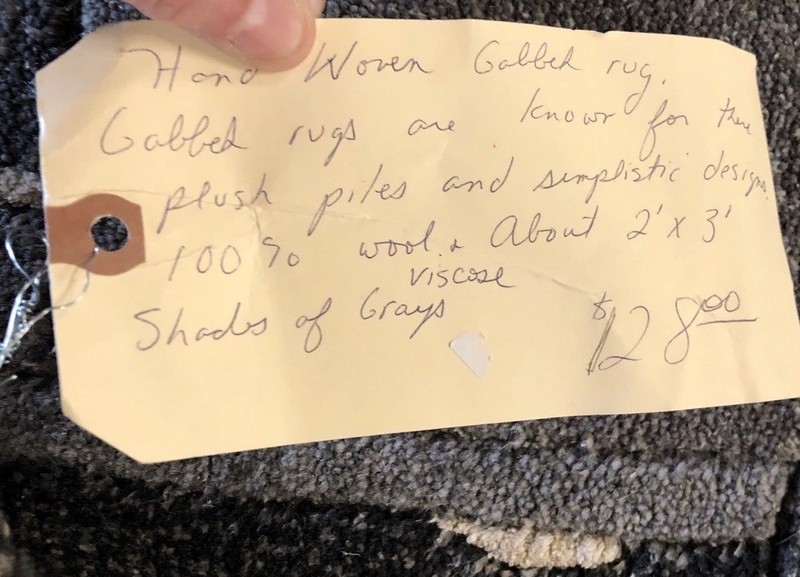 Hand Woven Gabbeh rug.
Gabbeh rugs are known for there
plush piles and simplistic designs.
100% wool. & About 2' x 3'
viscose
Shades of Grays
$128.00